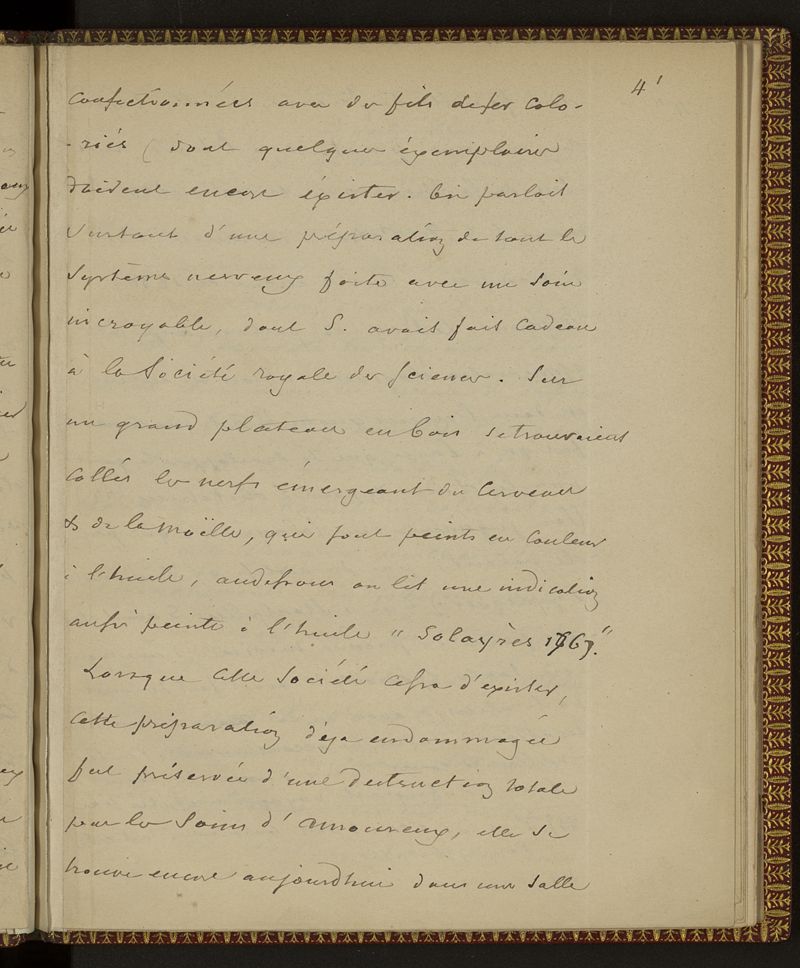 4'
confectionnées avec du fils defer colo-
-riés (dont quelques éxemplaires
doivent encore éxister. On parlait
surtout d'une préparation de tout le
système nerveux faite avec un soin
incroyable, dont S. avait fait cadeau
à la Société royale des Sciences. Sur
un grand plateau en bois setrouvaient
collés les nerfs émergeant du Cerveau
& de la Moëlle, qui sont peints en couleur
à l'huile, audessous on lit une indication
aussi peinte à l'huile "Solayrès 1767."
Lorsque cette Société cessa d'exister,
cette préparation déja endommagée
fut préservée d'une destruction totale
par les soins d'Amoureux, elle se
trouve encore aujourdhui dans une salle